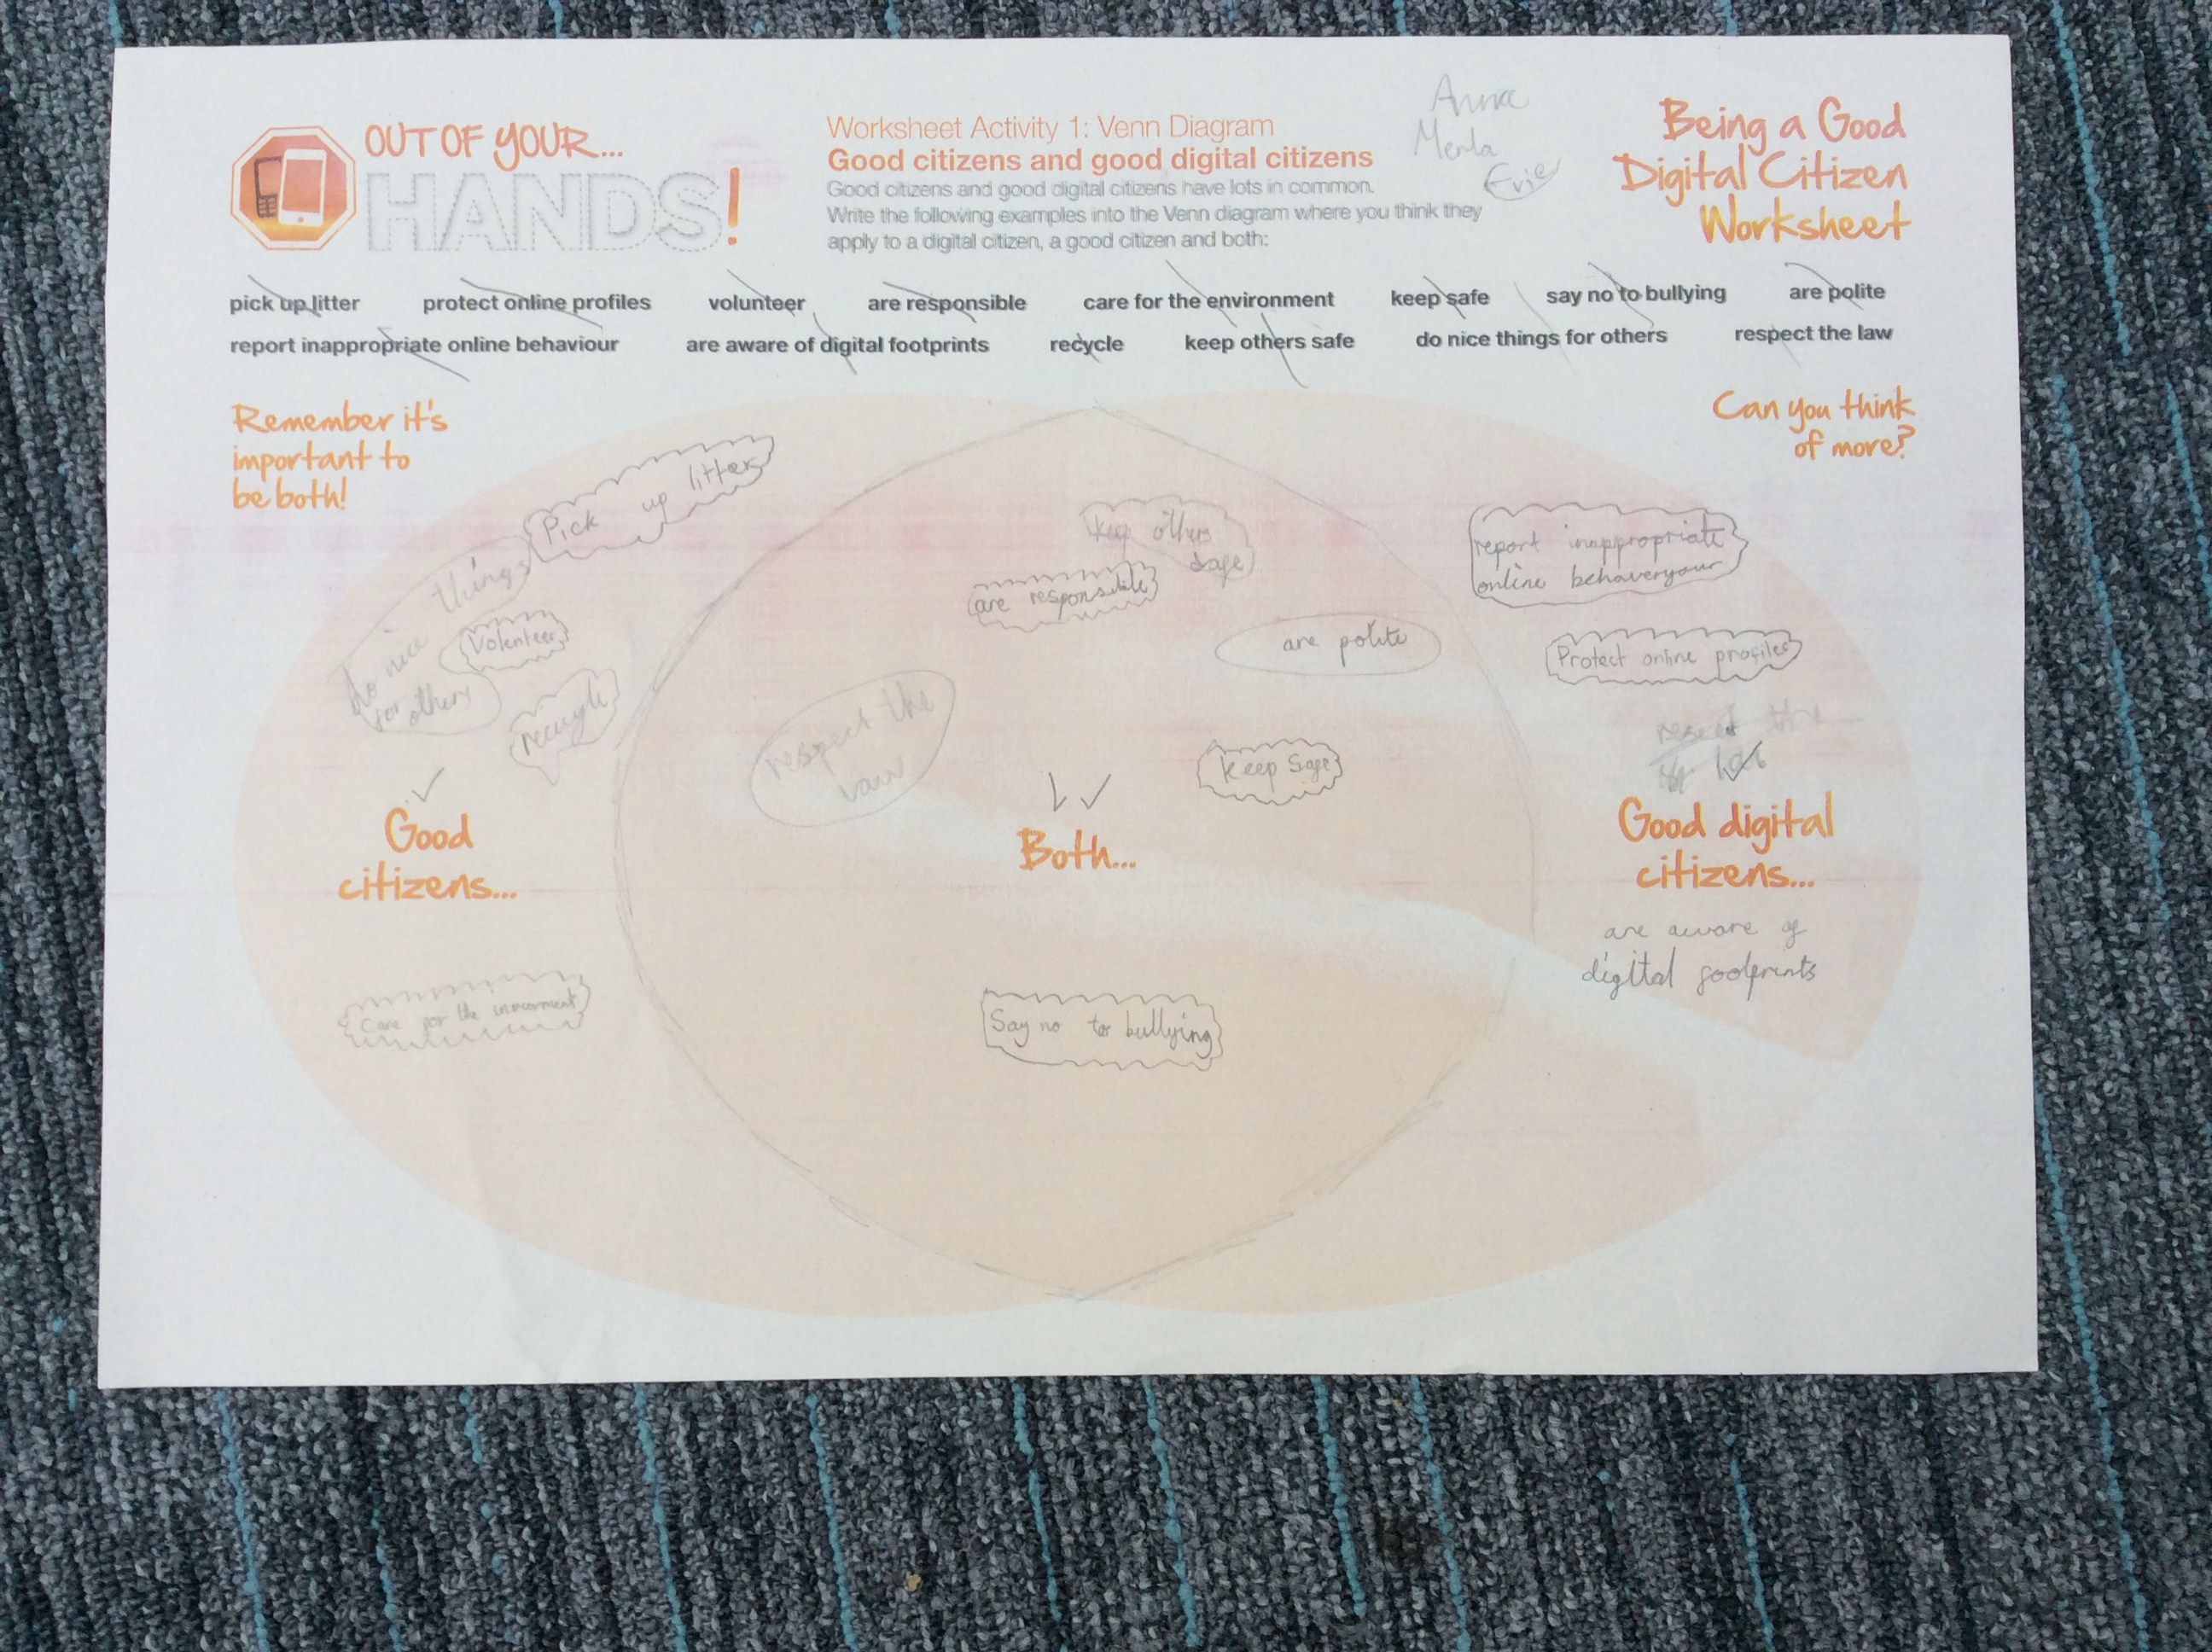 OUT OF YOUR...
HANDS!
Worksheet Activity 1: Venn Diagram
Good citizens and good digital citizens
Good citizens and good digital citizens have lots in common.
Write the following examples into the Venn diagram where you think they
apply to a digital citizen, a good citizen and both:
Anna
Merla
Evie
Being a Good
Digital Citizen
Worksheet
pick up litter protect online profiles volunteer are responsible care for the environment keep safe say no to bullying are polite
report inappropriate online behaviour are aware of digital footprints recycle keep others safe do nice things for others respect the law
Remember it's
important to
be both!
Can you think
of more?
Pick up litter
do nice things
for others
Volenteer
recycle
Good
citizens...
Care for the
keep others
safe
are responsible
are polite
respect the
law
keep Safe
Both...
Say no to bullying
report inappropriate
online behaveryour
Protect online profiles
the
Good digital
citizens...
are aware of
digital footprints